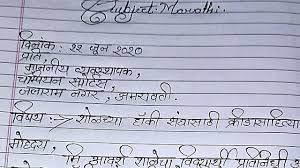 Subject:- Marathi.
दिनांक: २२ जून २०२०
प्रति,
माननीय व्यवस्थापक,
चॅम्पियन स्पोर्ट्स,
जलाराम नगर, अमरावती.
विषय :→ शाळेच्या हॉकी संघासाठी क्रीडासाहित्या
महोदय,
मी आदर्श शाळेचा विद्यार्थी प्रतिनिधी